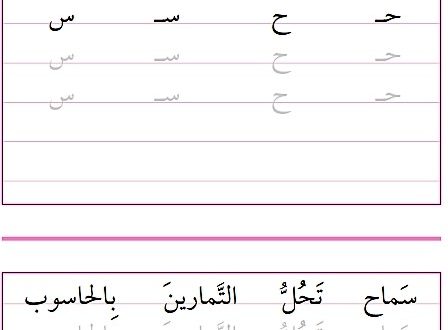 حـ ح سـ س
حـ ح سـ س
حـ ح سـ س
سَماح تَحُلُّ التَّمارينَ بِالحاسوب